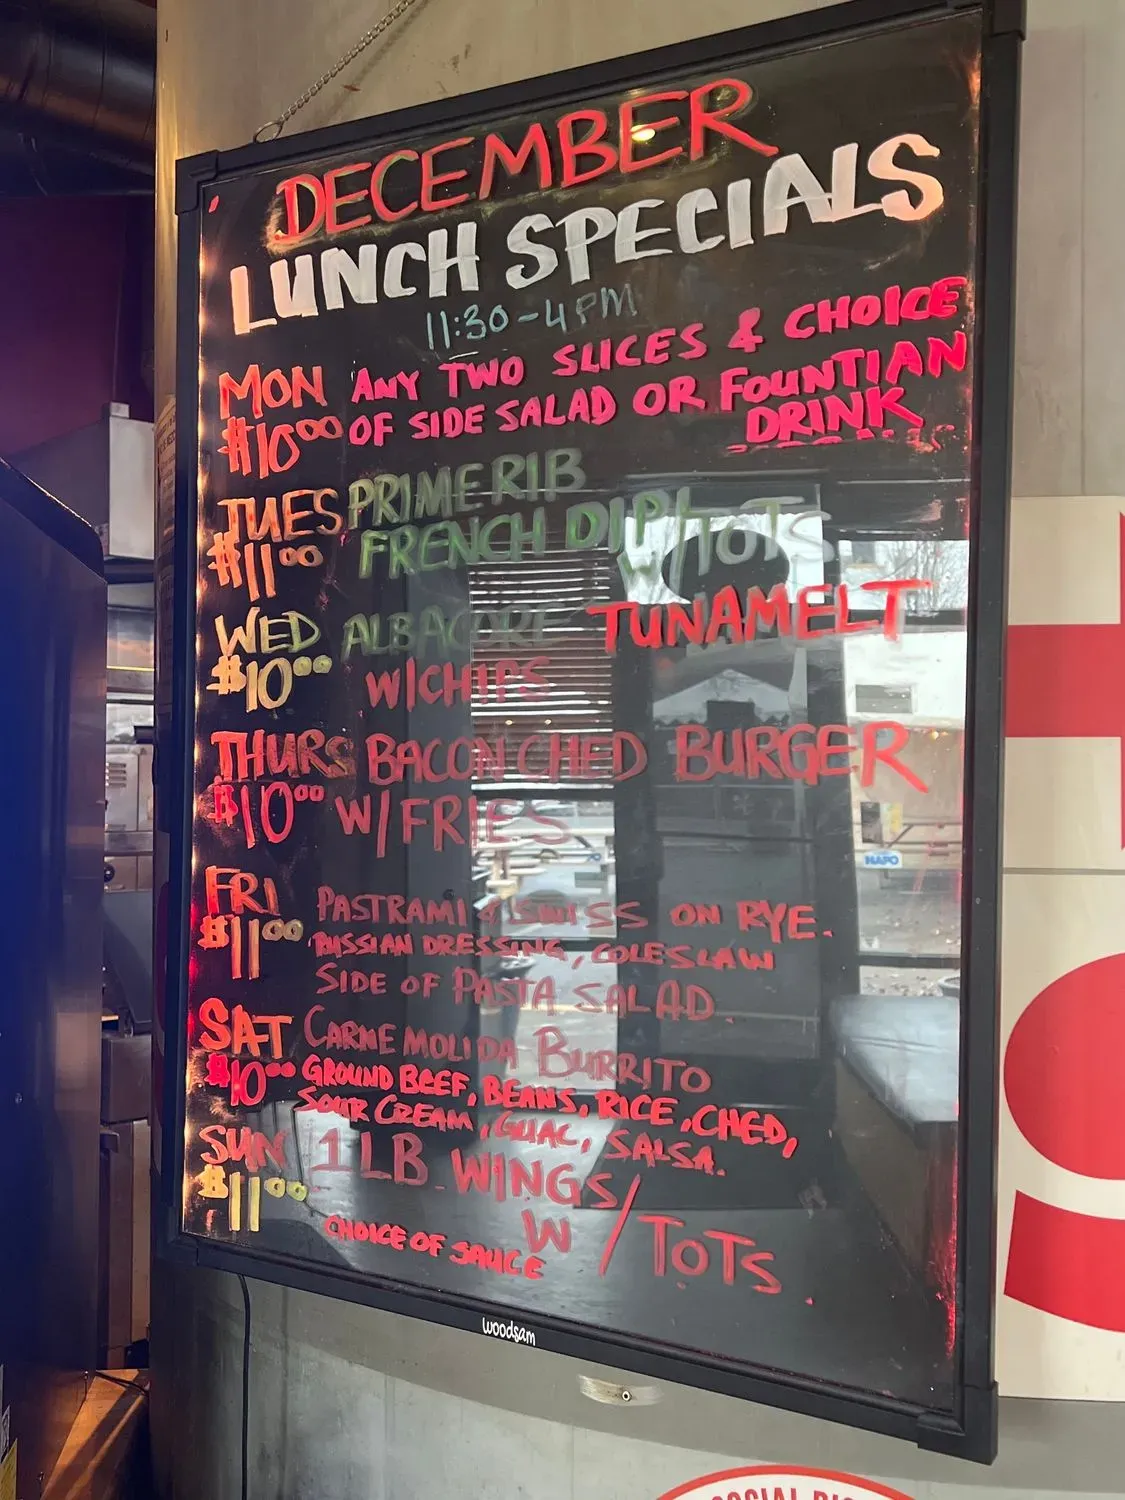 DECEMBER
LUNCH SPECIALS
11:30-4PM
MON ANY TWO SLICES & CHOICE
$10⁰⁰ OF SIDE SALAD OR FOUNTIAN
DRINK
TUES PRIME RIB
$11⁰⁰ FRENCH DIP W/TOTS
WED ALBACORE TUNAMELT
$10⁰⁰ W/CHIPS
THURS BACON CHED BURGER
$10⁰⁰ W/FRIES
FRI PASTRAMI & SWISS ON RYE.
$11⁰⁰ RUSSIAN DRESSING, COLESLAW
SIDE OF PASTA SALAD.
SAT CARNE MOLIDA BURRITO
$10⁰⁰ GROUND BEEF, BEANS, RICE, CHED,
SOUR CREAM, GUAC, SALSA.
SUN 1 LB. WINGS/
$11⁰⁰ W/TOTS.
CHOICE OF SAUCE
woodsam
NAPO